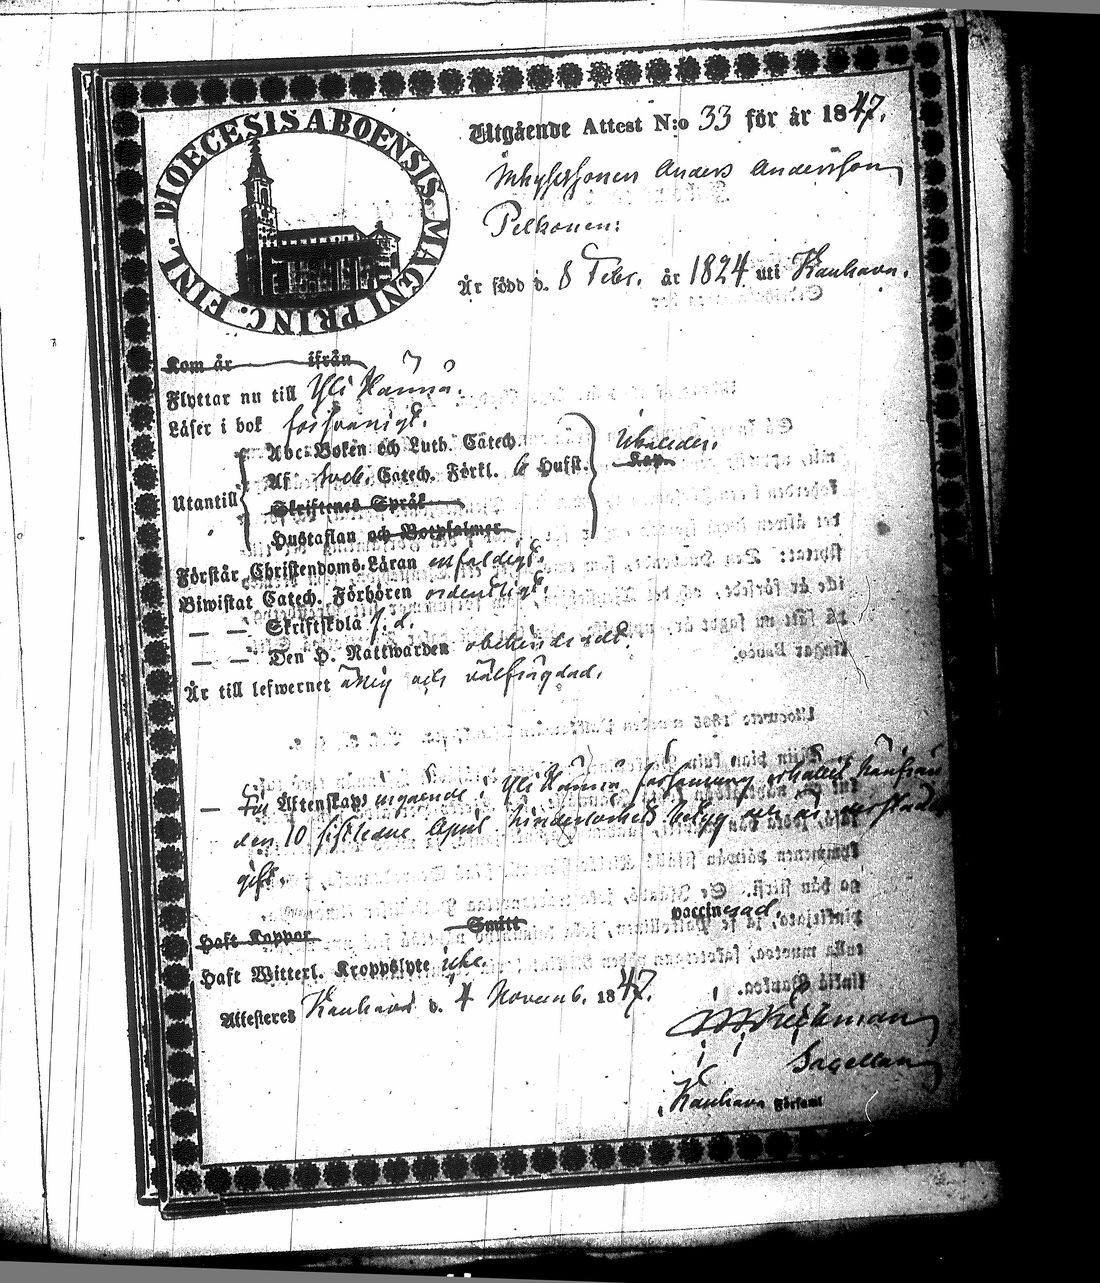 DIOECESIS ABOENSIS. MAGNI PRINC. FINL.
Utgående Attest N:o 33 för år 1847.
Inhysessonen Anders Andersson
Pelkonen:
Är född d. 8 Febr. år 1824 uti Kauhava.
Kom år ifrån
Flyttar nu till Yli Härmä.
Läser i bok försvarligt.
Abc-Boken och Luth. Catech.
Utantill Af Sveb. Catech. Förkl. 6 Hufst. Kap.
Skriftenes Språk
Hustaflan och Botpsalmer
Förstår Christendoms-Läran enfaldigt.
Biwistat Catech. Förhören ordentligt.
— — Skriftskola j. d.
— — Den H. Nattwarden obehindradt.
Är till lefwernet ärlig och välfrägdad.
— För Äktenskaps ingående i Yli Härmä församling erhållit härifrån
den 10 sistledne April hinderlöshets betyg och är
gift.
Haft Koppor Smitt vaccinerad.
Haft Witterl. Kroppslyte icke.
Attesteres Kauhava d. 4 Novemb. 1847.
Sacellan
Kauhava Församl